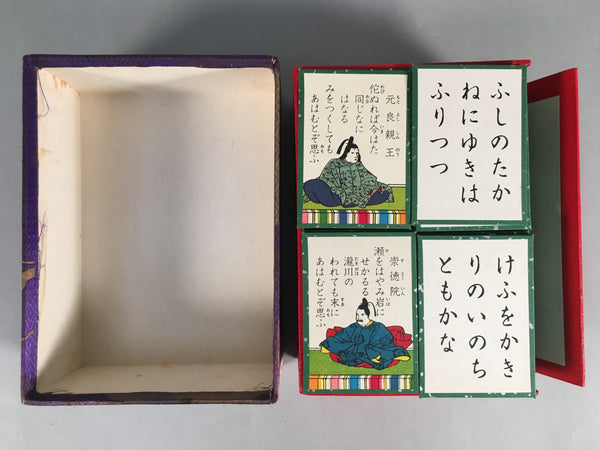 元良親王
佗ぬれば今はた
同じなに
はなる
みをつくしても
あはむとぞ思ふ
ふしのたか
ねにゆきは
ふりつつ
崇徳院
瀬をはやみ岩に
せかるる
瀧川の
われても末に
あはむとぞ思ふ
けふをかき
りのいのち
ともかな